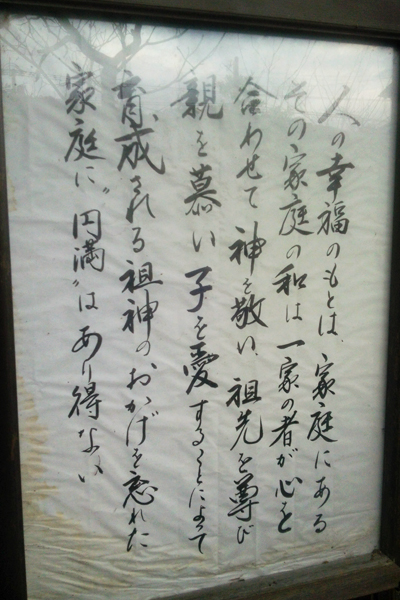 人の幸福のもとは、家庭にある
その家庭の和は一家の者が心を
合わせて神を敬い、祖先を尊び
親を慕い子を愛することによって
育成される祖神の、おかげを忘れた
家庭に〝円満〟はあり得ない